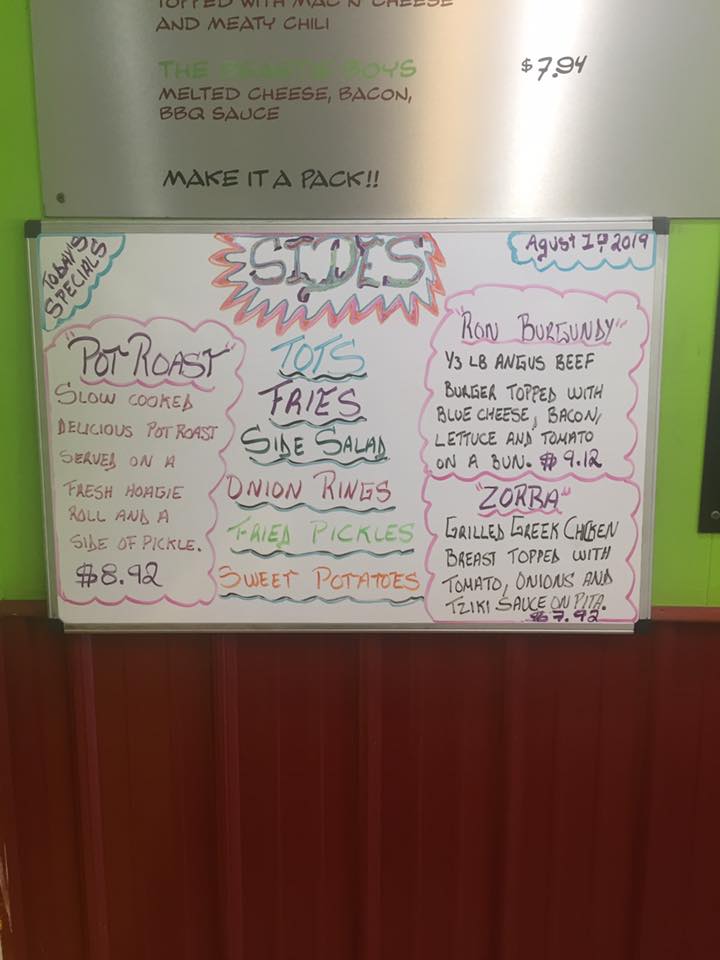 TOPPED WITH MAC N' CHEESE
AND MEATY CHILI
THE BEASTIE BOYS $7.94
MELTED CHEESE, BACON,
BBQ SAUCE
MAKE IT A PACK!!
TODAY'S
SPECIALS
SIDES
Agust 1st 2019
"POT ROAST"
SLOW COOKED
DELICIOUS POT ROAST
SERVED ON A
FRESH HOAGIE
ROLL AND A
SIDE OF PICKLE.
$8.92
TOTS
FRIES
SIDE SALAD
ONION RINGS
FRIED PICKLES
SWEET POTATOES
"RON BURGUNDY"
1/3 LB ANGUS BEEF
BURGER TOPPED WITH
BLUE CHEESE, BACON,
LETTUCE AND TOMATO
ON A BUN. $9.12
"ZORBA"
GRILLED GREEK CHICKEN
BREAST TOPPED WITH
TOMATO, ONIONS AND
TZIKI SAUCE ON PITA.
$7.92